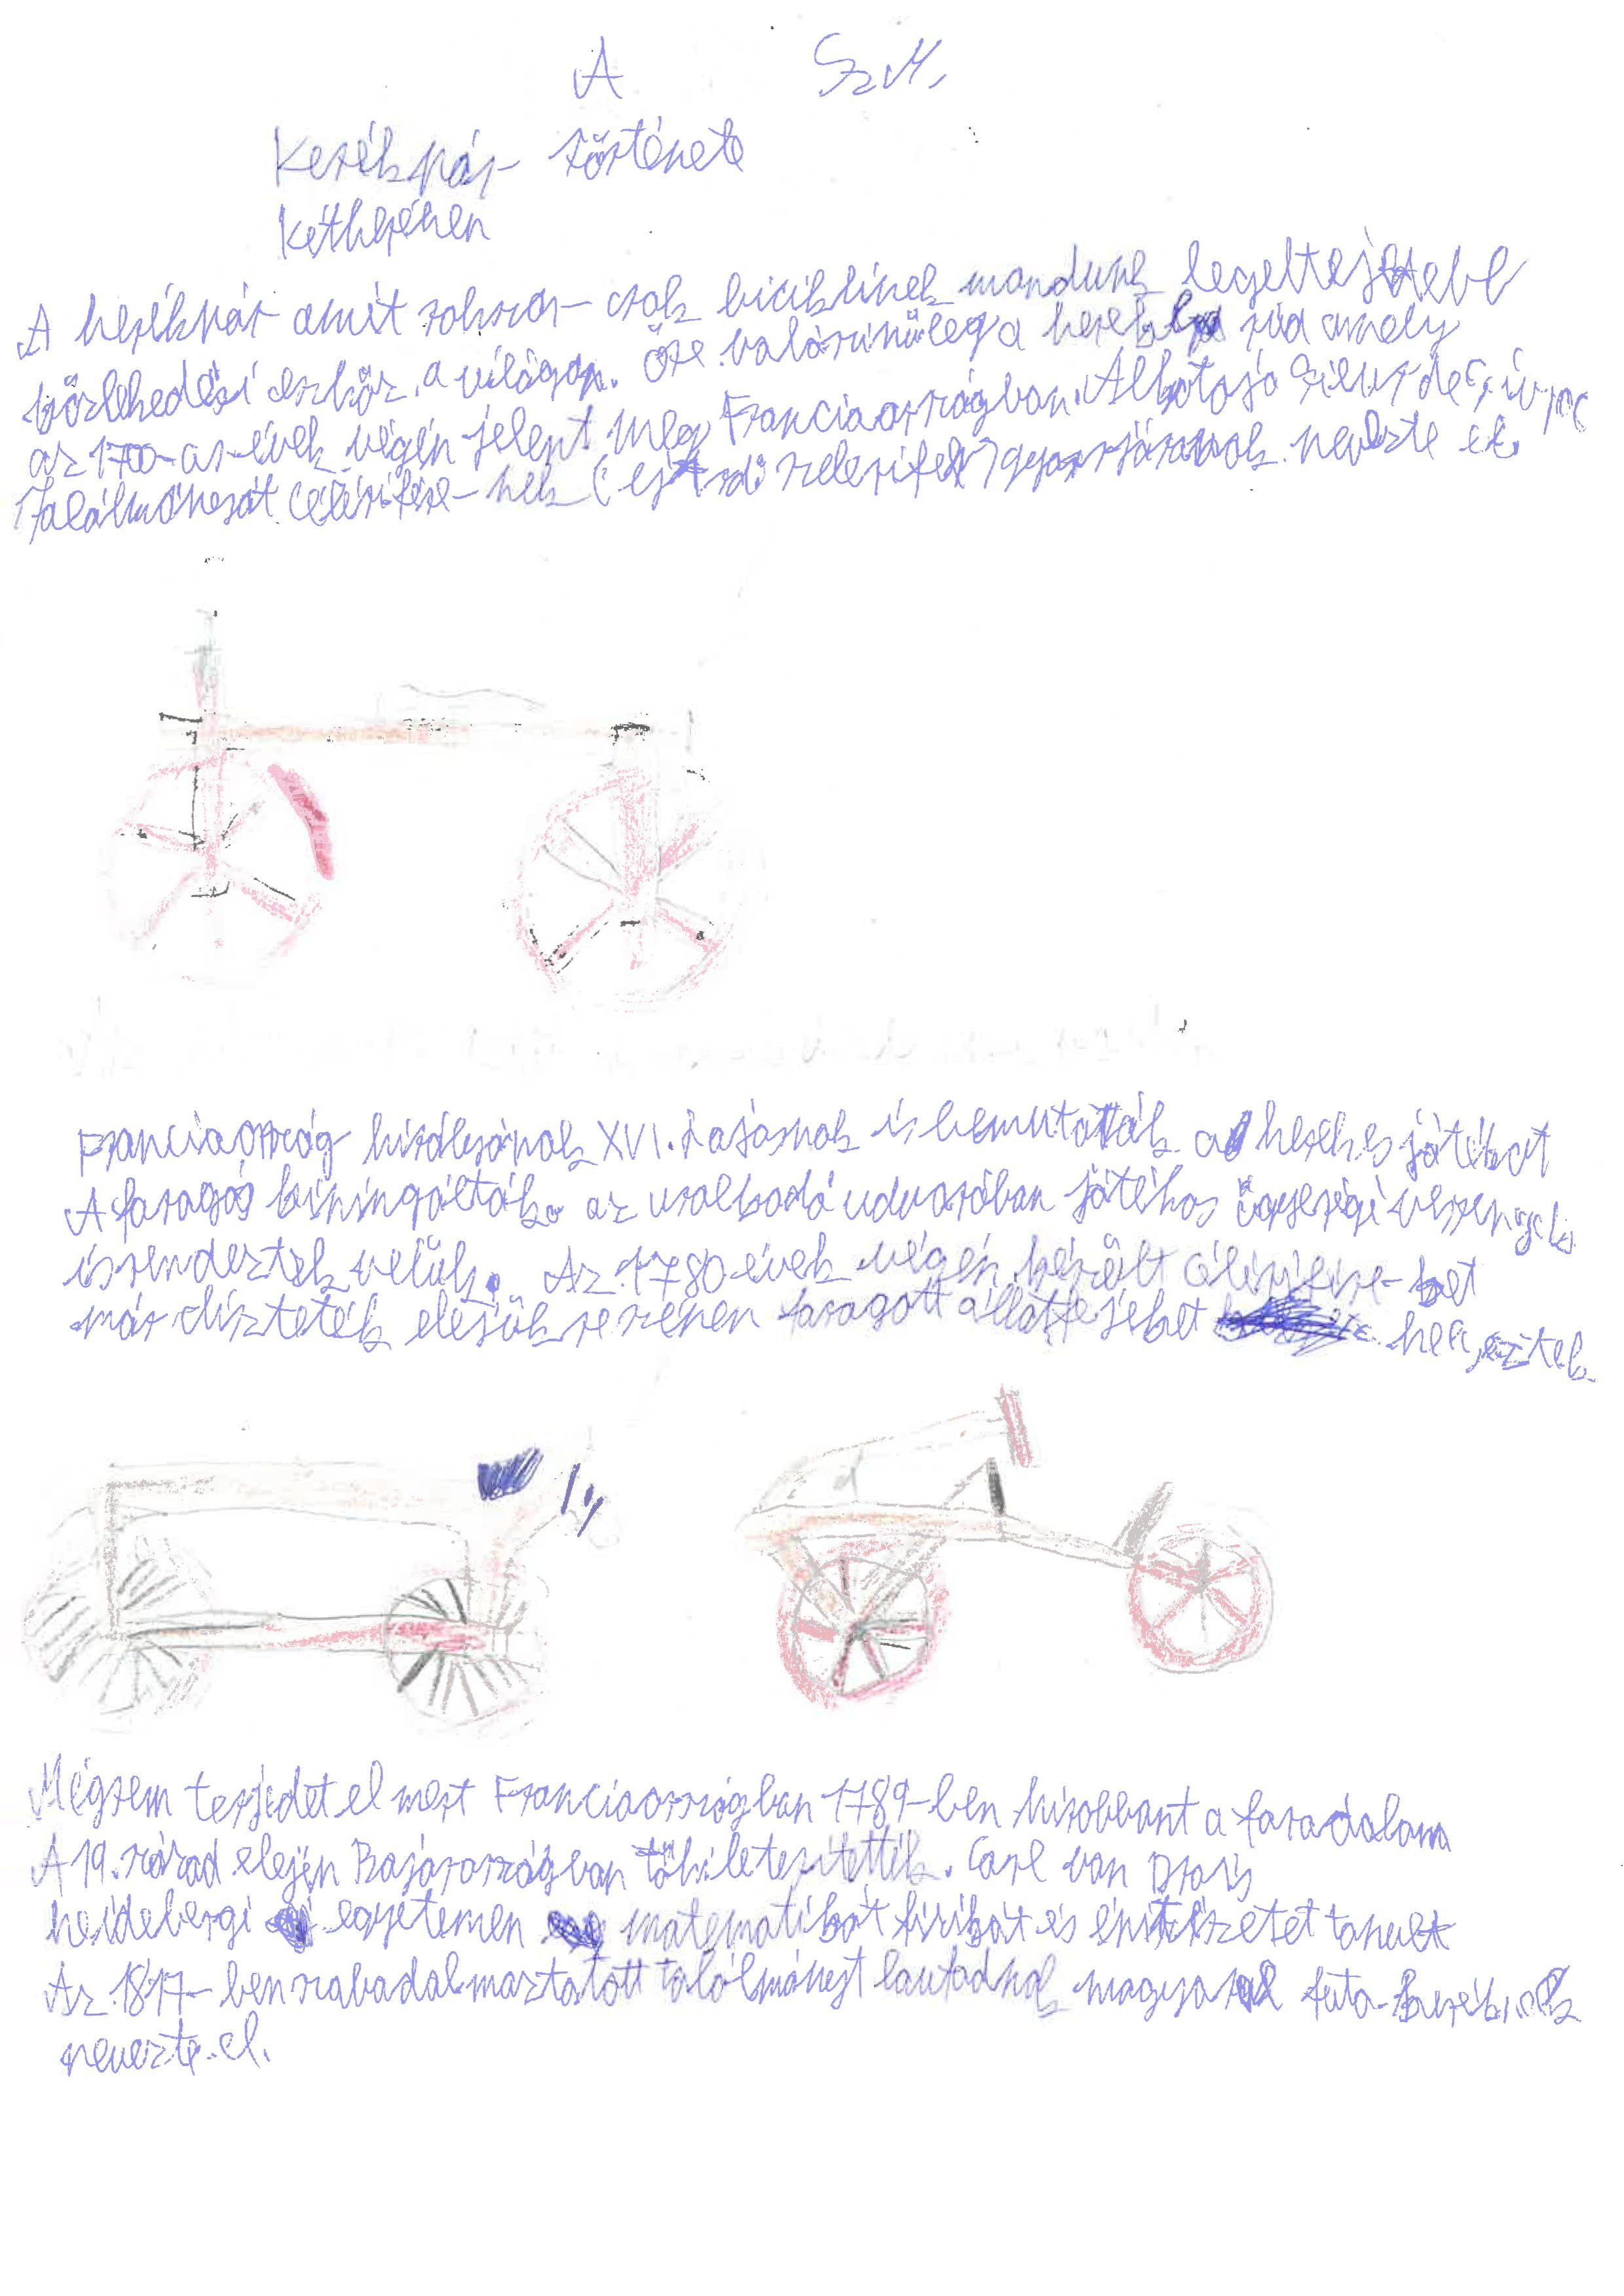 A Sz M.
Kerékpár története
Kétkepében
A kerékpár amit sokszor csak biciklinek mondunk legeltejettebb
közlekedési eszköz a világon. Őse valószinűleg a kerekes rúd amely
az 1700-as-évek végén jelent meg Franciaországban. Alkotója Sieur de
Találmányát Célérifére-nek (ejtsd: szelerifér) gyorsjárónak nevezte el.
Franciaország királyának XVI. Lajosnak is bemutatták a kerekes játékot
A faragás az uralkodó udvarában játékos ügyeségi versenyek
is rendeztek velük. Az 1780 évek végén készült célérifére-ket
már díszteték elejük részén faragott állatfejeket
Mégsem terjedet el mert Franciaországban 1789-ben kirobbant a faradalom
A 19. század elején Bajorországban tökéletesítették. Carl von Drais
heidebergi egyetemen matematikát fizikát és épitészetet tanult
Az 1817-ben szabadalmaztatott találmányt laufadnak magyarul futa-kerék
nevezte el.